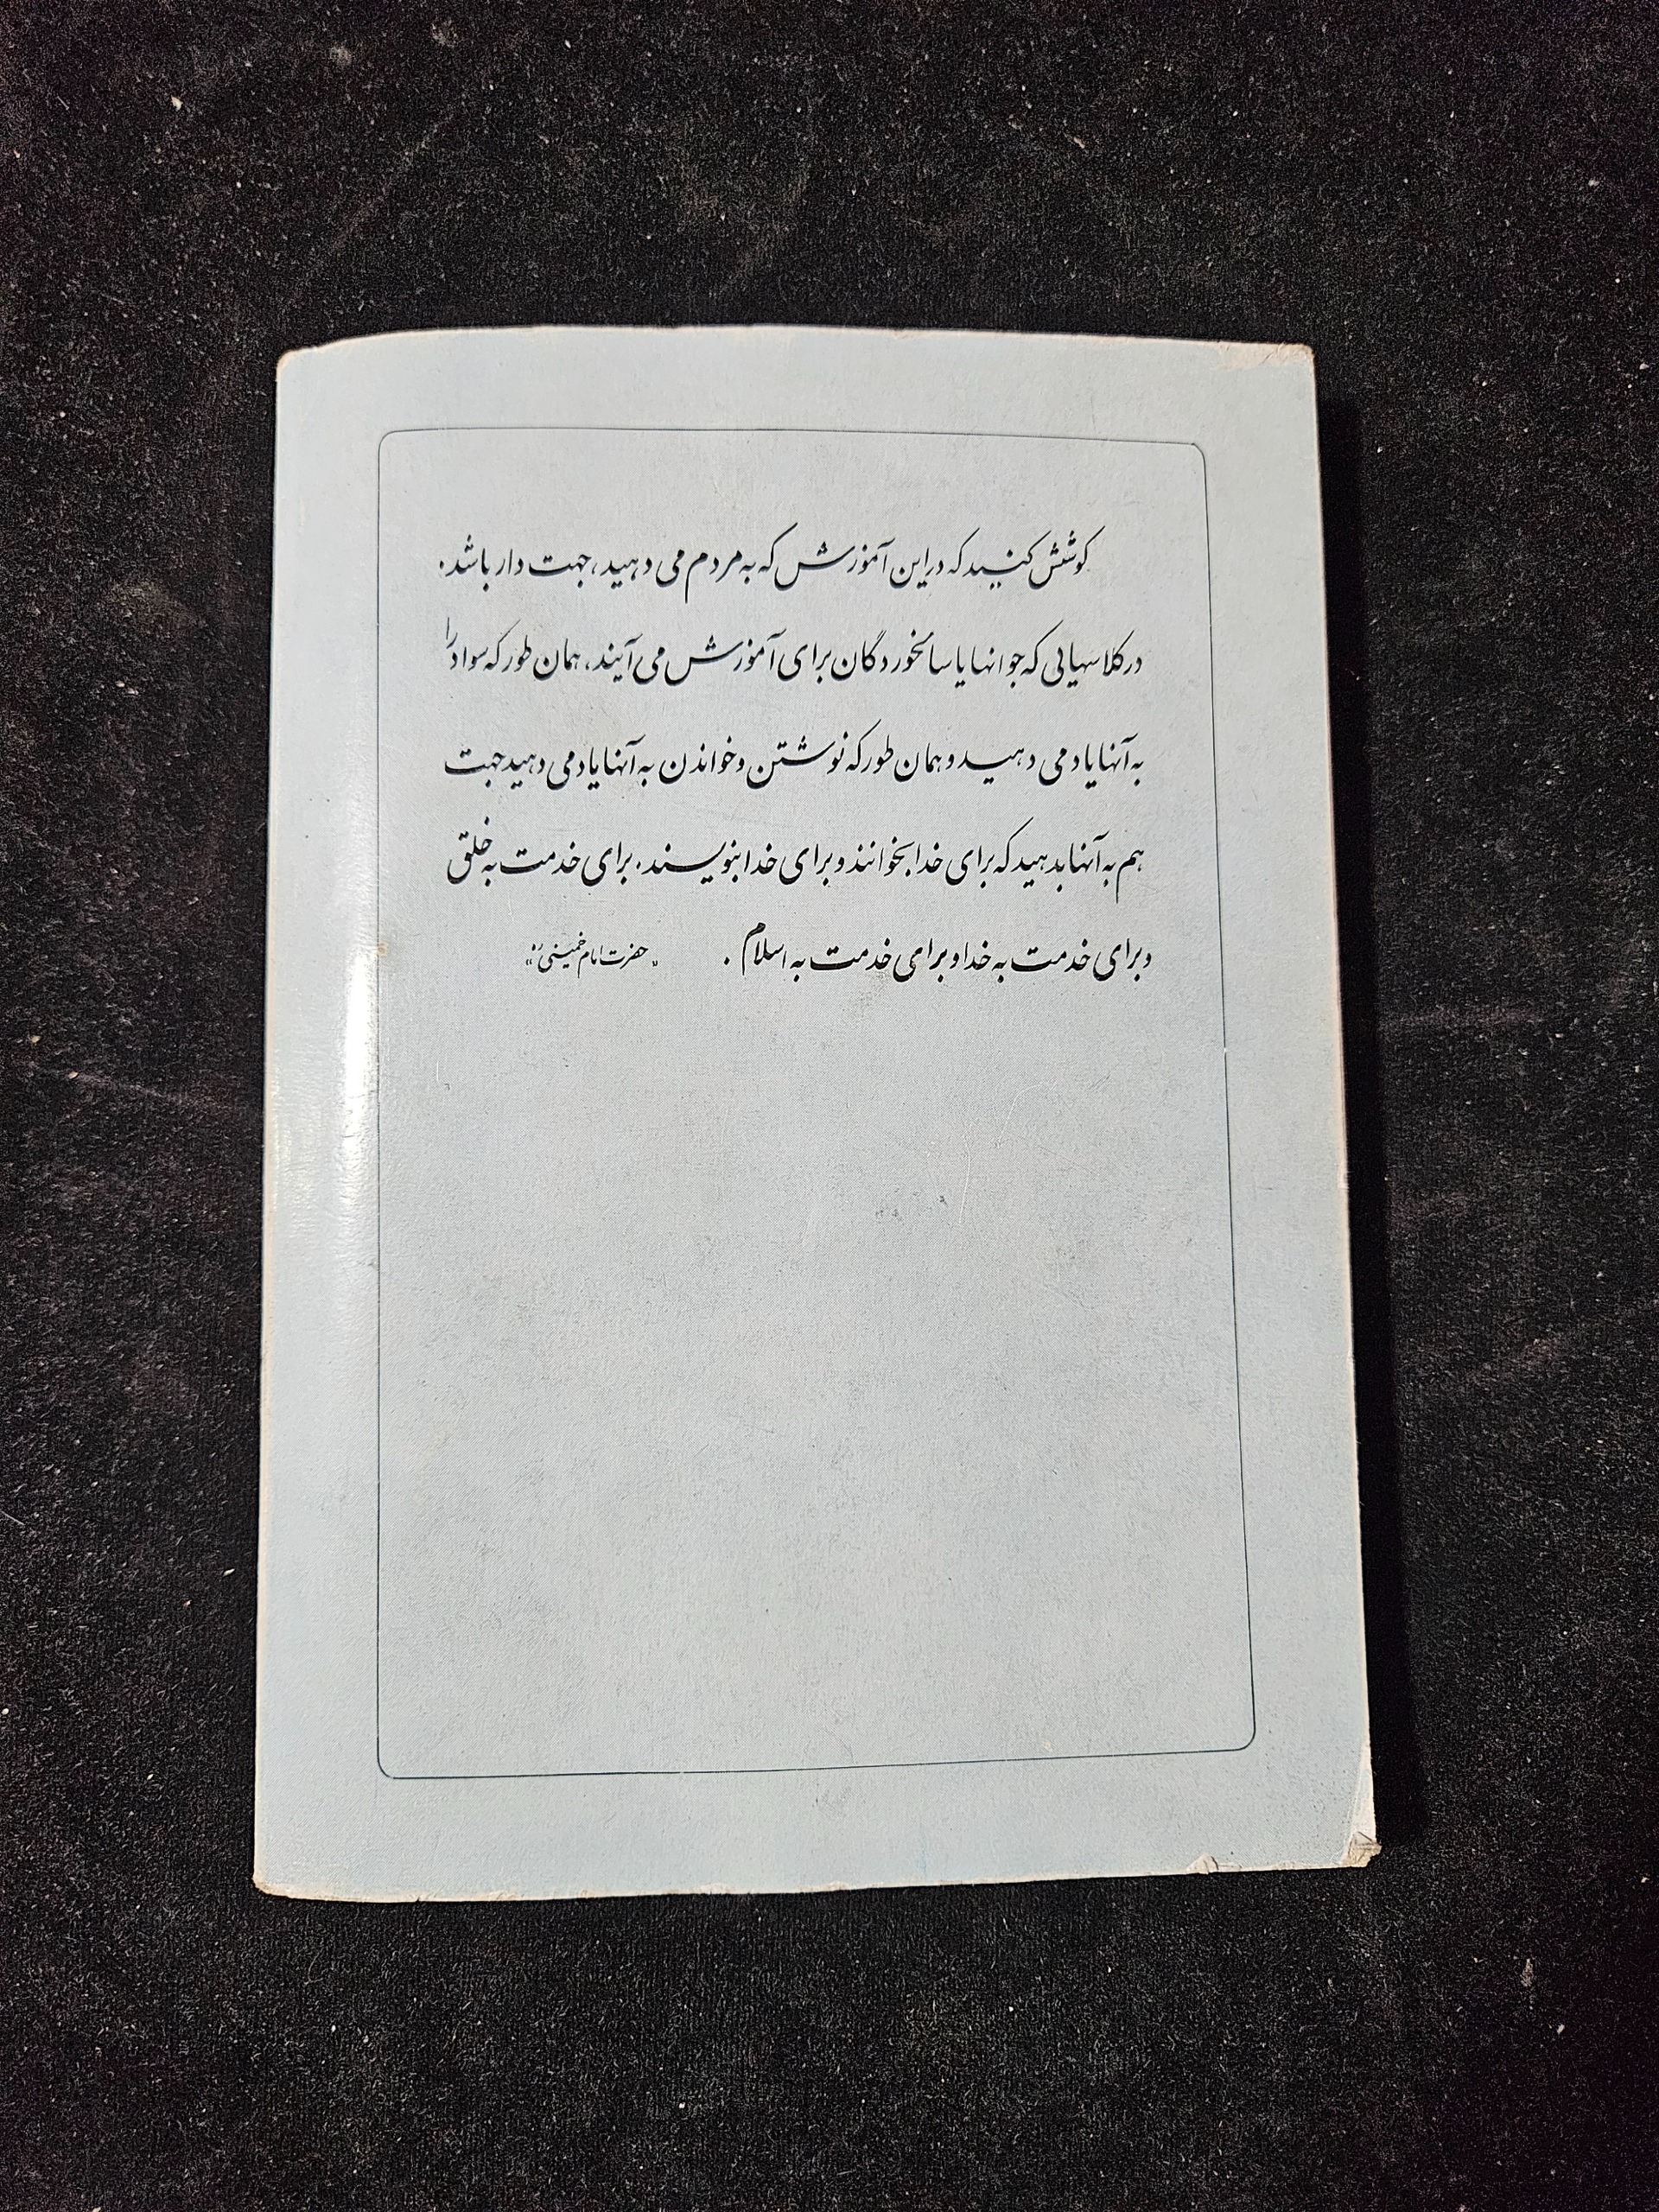 کوشش کنید که در این آموزش که به مردم می دهید، جهت دار باشد.
در کلاسهایی که جوانها یا سالخوردگان برای آموزش می آیند، همان طور که سواد را
به آنها یاد می دهید و همان طور که نوشتن و خواندن به آنها یاد می دهید جهت
هم به آنها بدهید که برای خدا بخوانند و برای خدا بنویسند. برای خدمت به خلق
و برای خدمت به خدا و برای خدمت به اسلام. «حضرت امام خمینی ره»